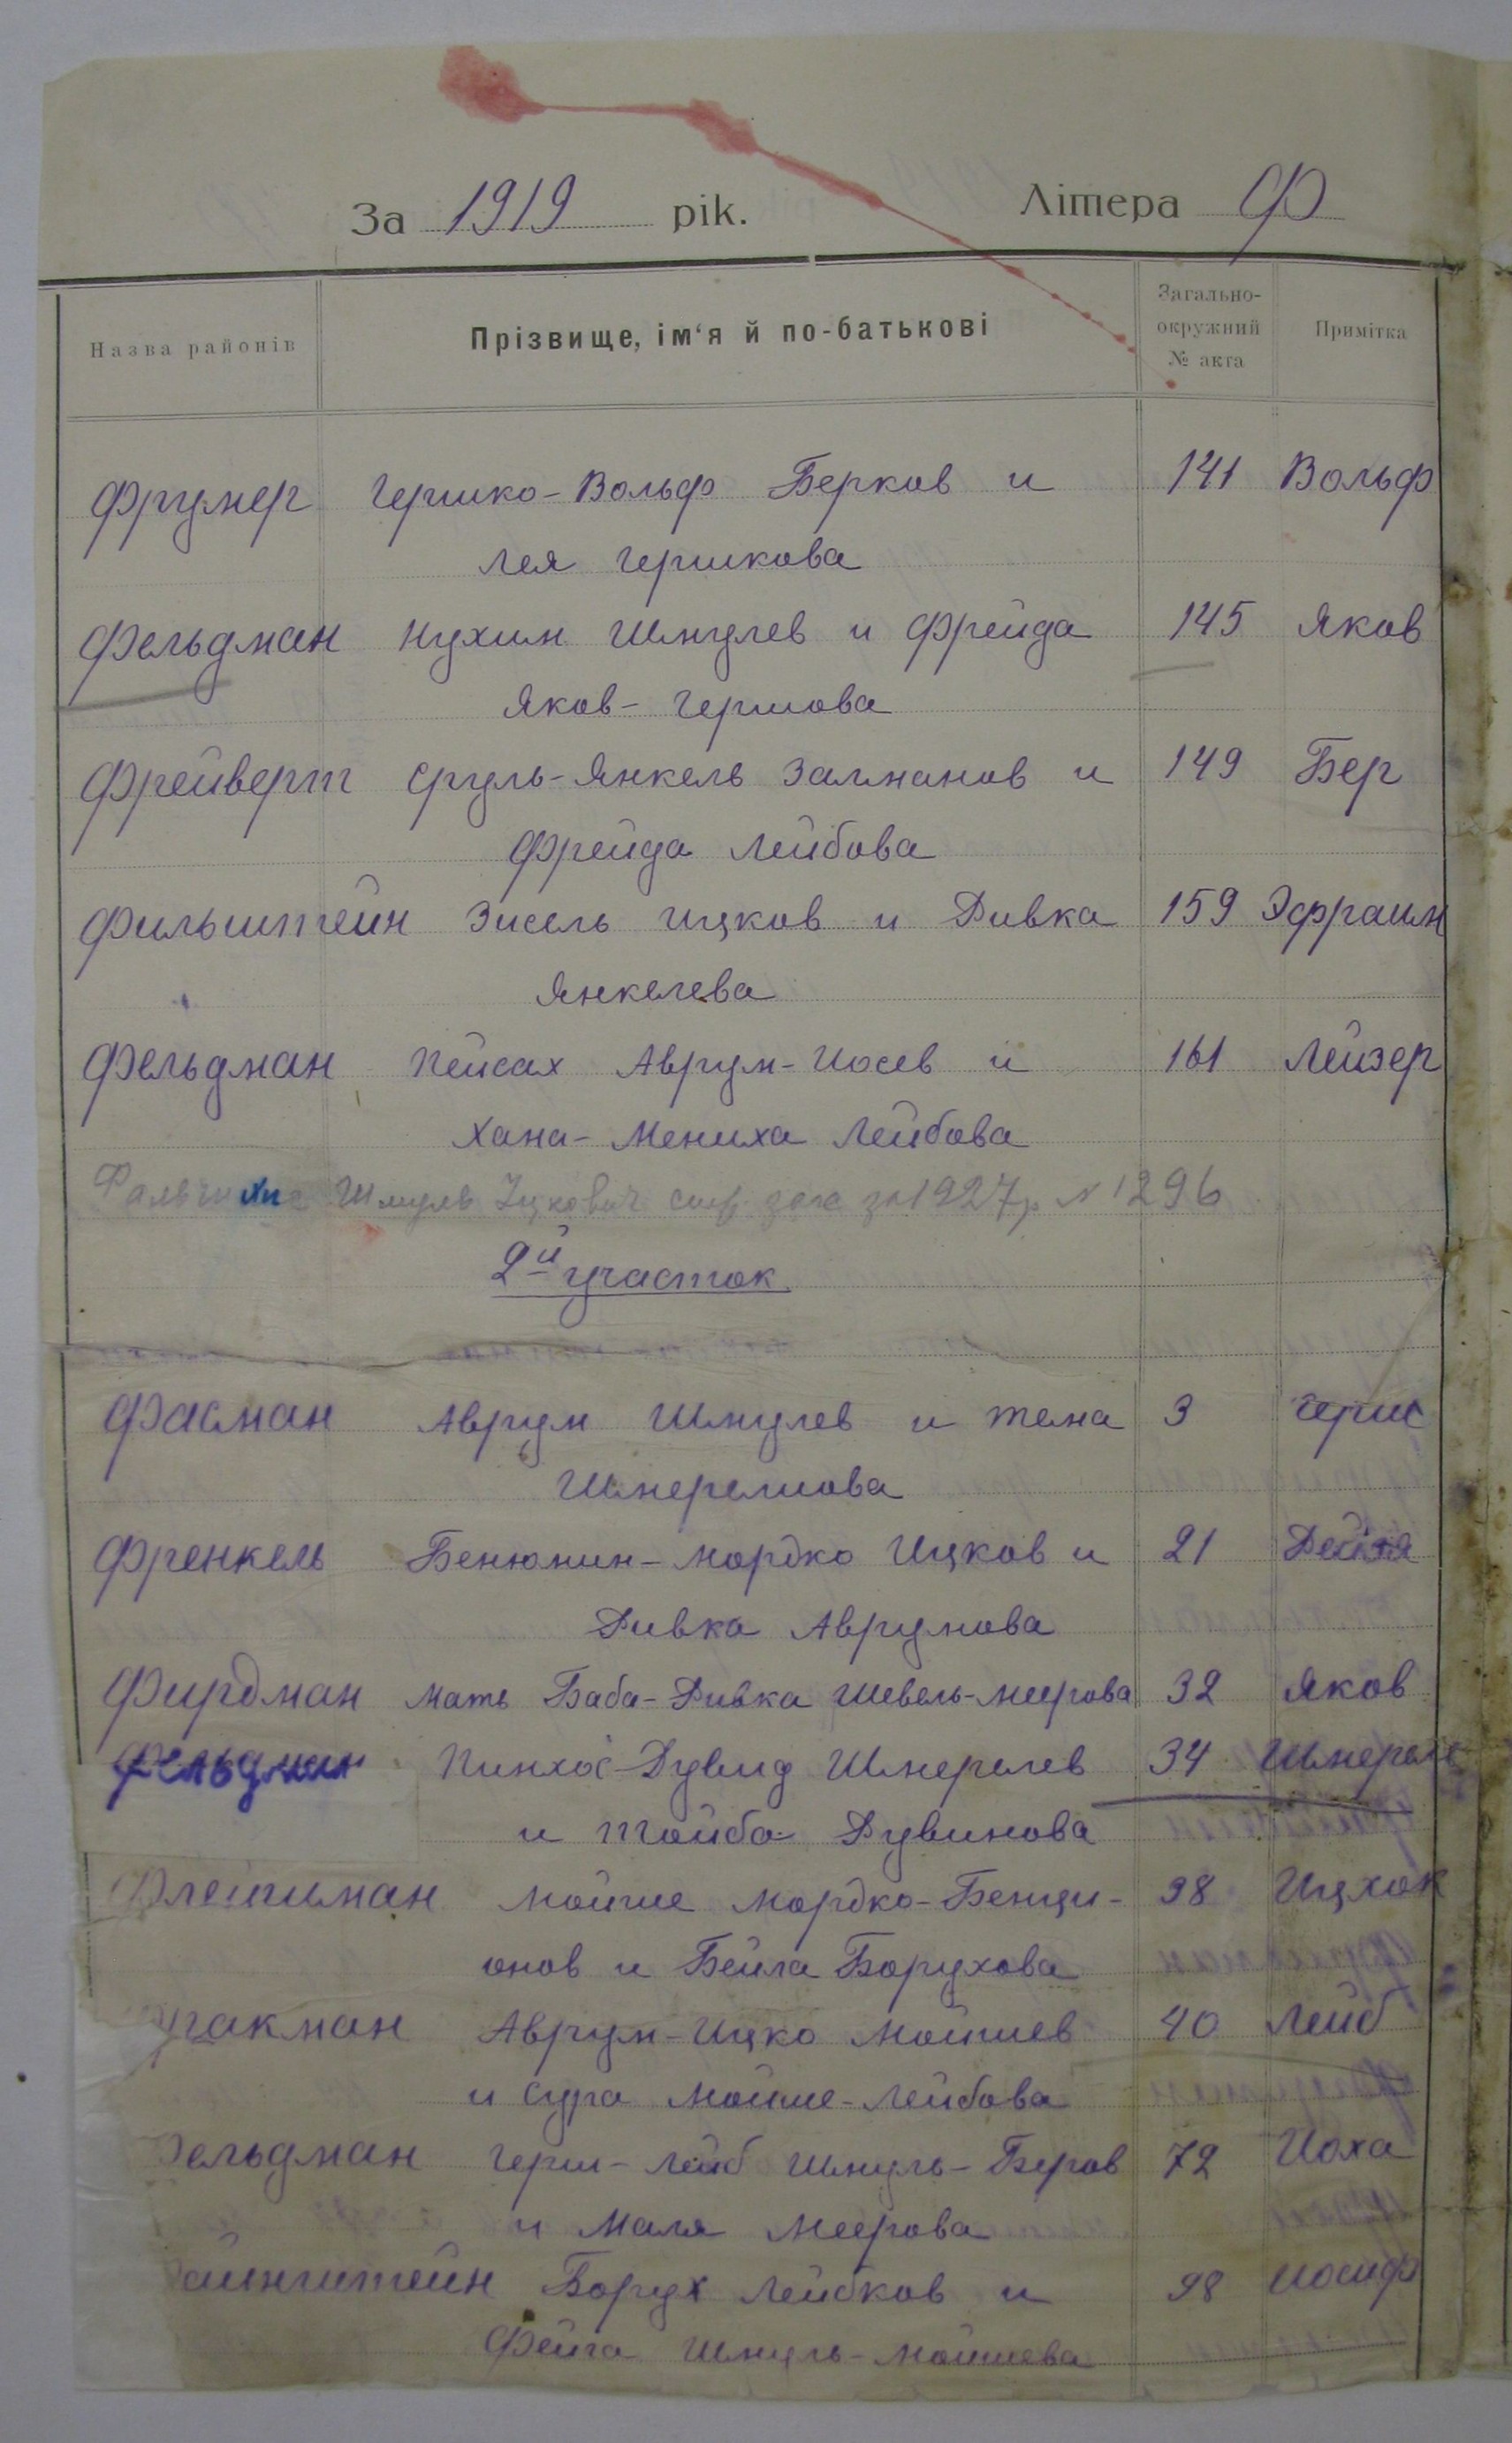 За 1919 рік. Літера Ф
Назва районів Прізвище, ім'я й по-батькові Загально-окружний № акта Примітка
Фрумер Гершко-Вольф Берков и 141 Вольф
Лея Гершкова
Фельдман Нухим Шмулев и Фрейда 145 Яков
Яков-Гершова
Фрейверт Сруль-Янкель Залманов и 149 Бер
Фрейда Лейбова
Фильштейн Зисель Ицков и Ривка 159 Эфраим
Янкелева
Фельдман Пейсах Аврум-Иосев и 161 Лейзер
Хана-Мениха Лейбова
Шмуль Ицкович за 1927 р N 1296
2й участок
Фасман Аврум Шмулев и тема 3 Герш
Шмерелиова
Френкель Бенюмин-Мордко Ицков и 21
Ривка Аврумова
Фирдман мать Баба-Ривка Шевель-Меерова 32 Яков
Фельдман Пинхос-Дувид Шмерелев 34 Шмерель
и Тойба Рувинова
Флейшман Мойше Мордко-Бенци- 38 Ицхок
онов и Бейла Борухова
Аврум-Ицко Мойшев 40 Лейб
и Сура Мойше-Лейбова
ельдман Герш-Лейб Шмуль-Беров 72 Йоха
и Маля Меерова
айнштейн Борух Лейбков и 98 Иосиф
Фейга Шмуль-Мойшева